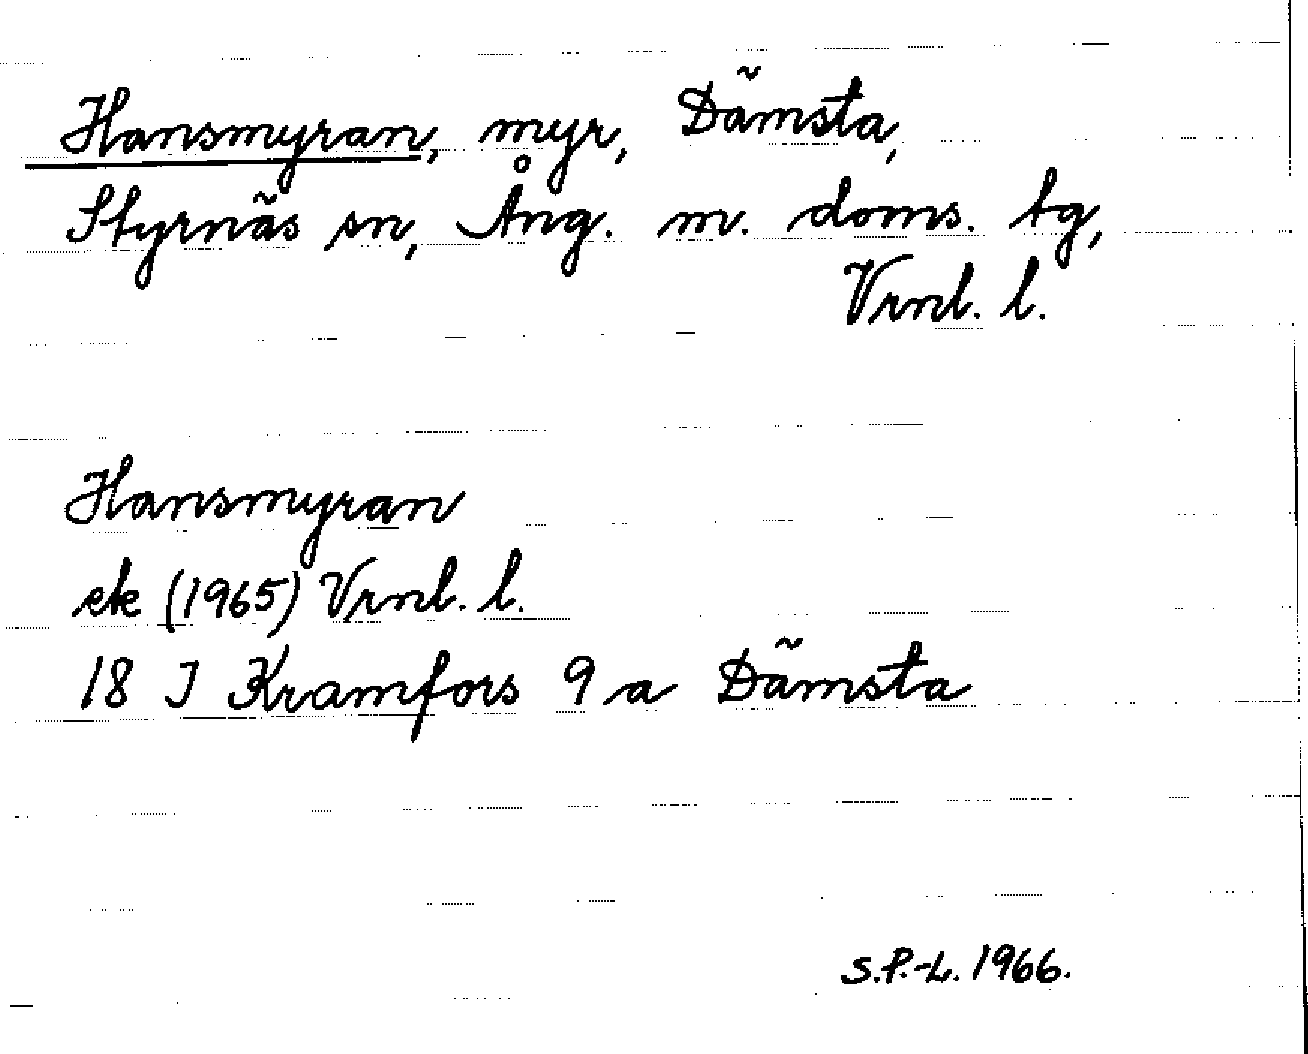 Hansmyran, myr, Dämsta,
Styrnäs sn, Ång. m. doms. tg,
Vrnl. l.
Hansmyran
ek (1965) Vrnl. l.
18 I Kramfors 9 a Dämsta
S.P.-L. 1966.